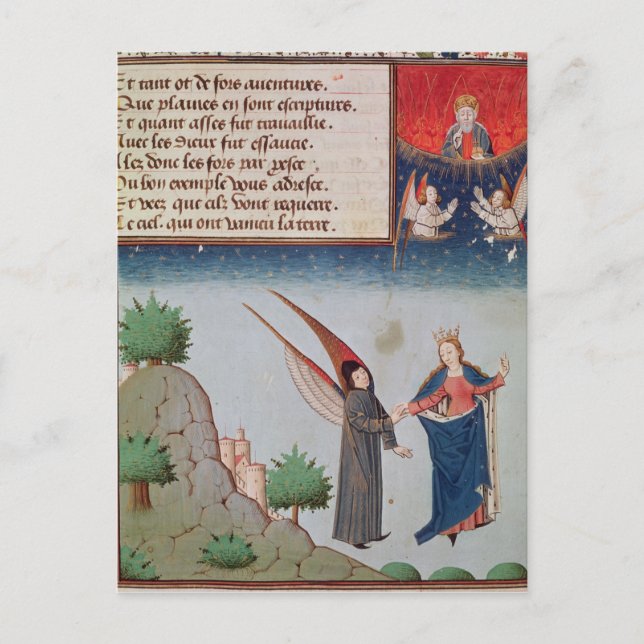 Et tant ot de fors aventures.
Que plaines en sont escriptures.
Et quant asses fut travaillie.
Avec les dieux fut essaucie.
Alez donc les fors par proesce
Du bon exemple vous adresce.
Et veez que cilz vont requerre.
Le ciel. qui ont vaincu la terre.